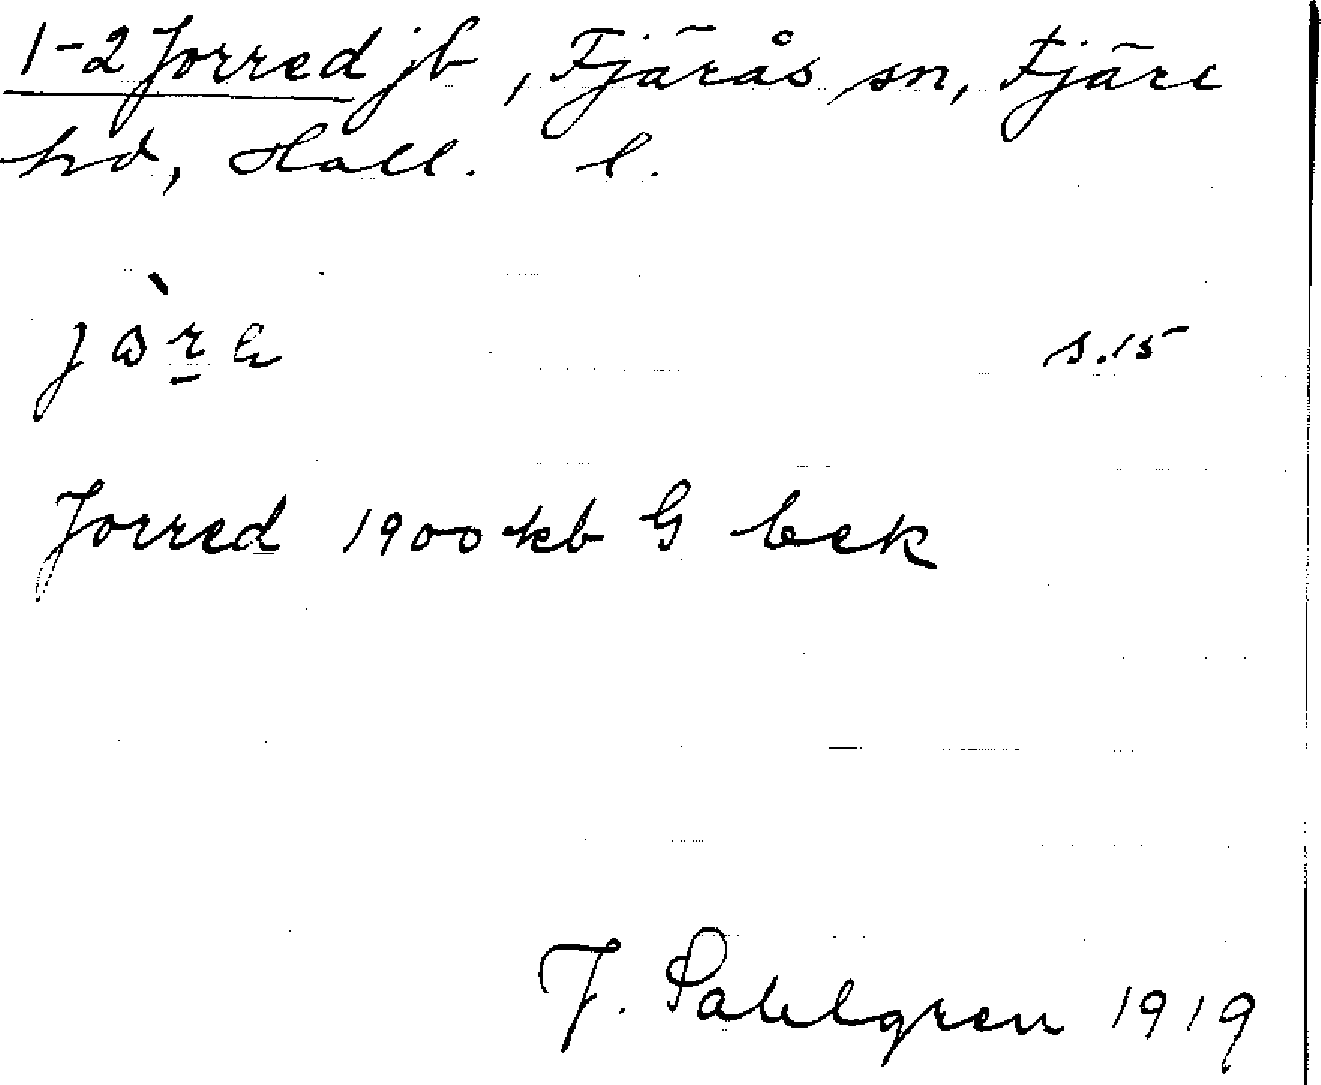 1-2 Jorred jb, Fjärås sn, Fjäre
hd, Hall. l.
jòre s.15
Jorred 1900 kb G bek
J. Sahlgren 1919